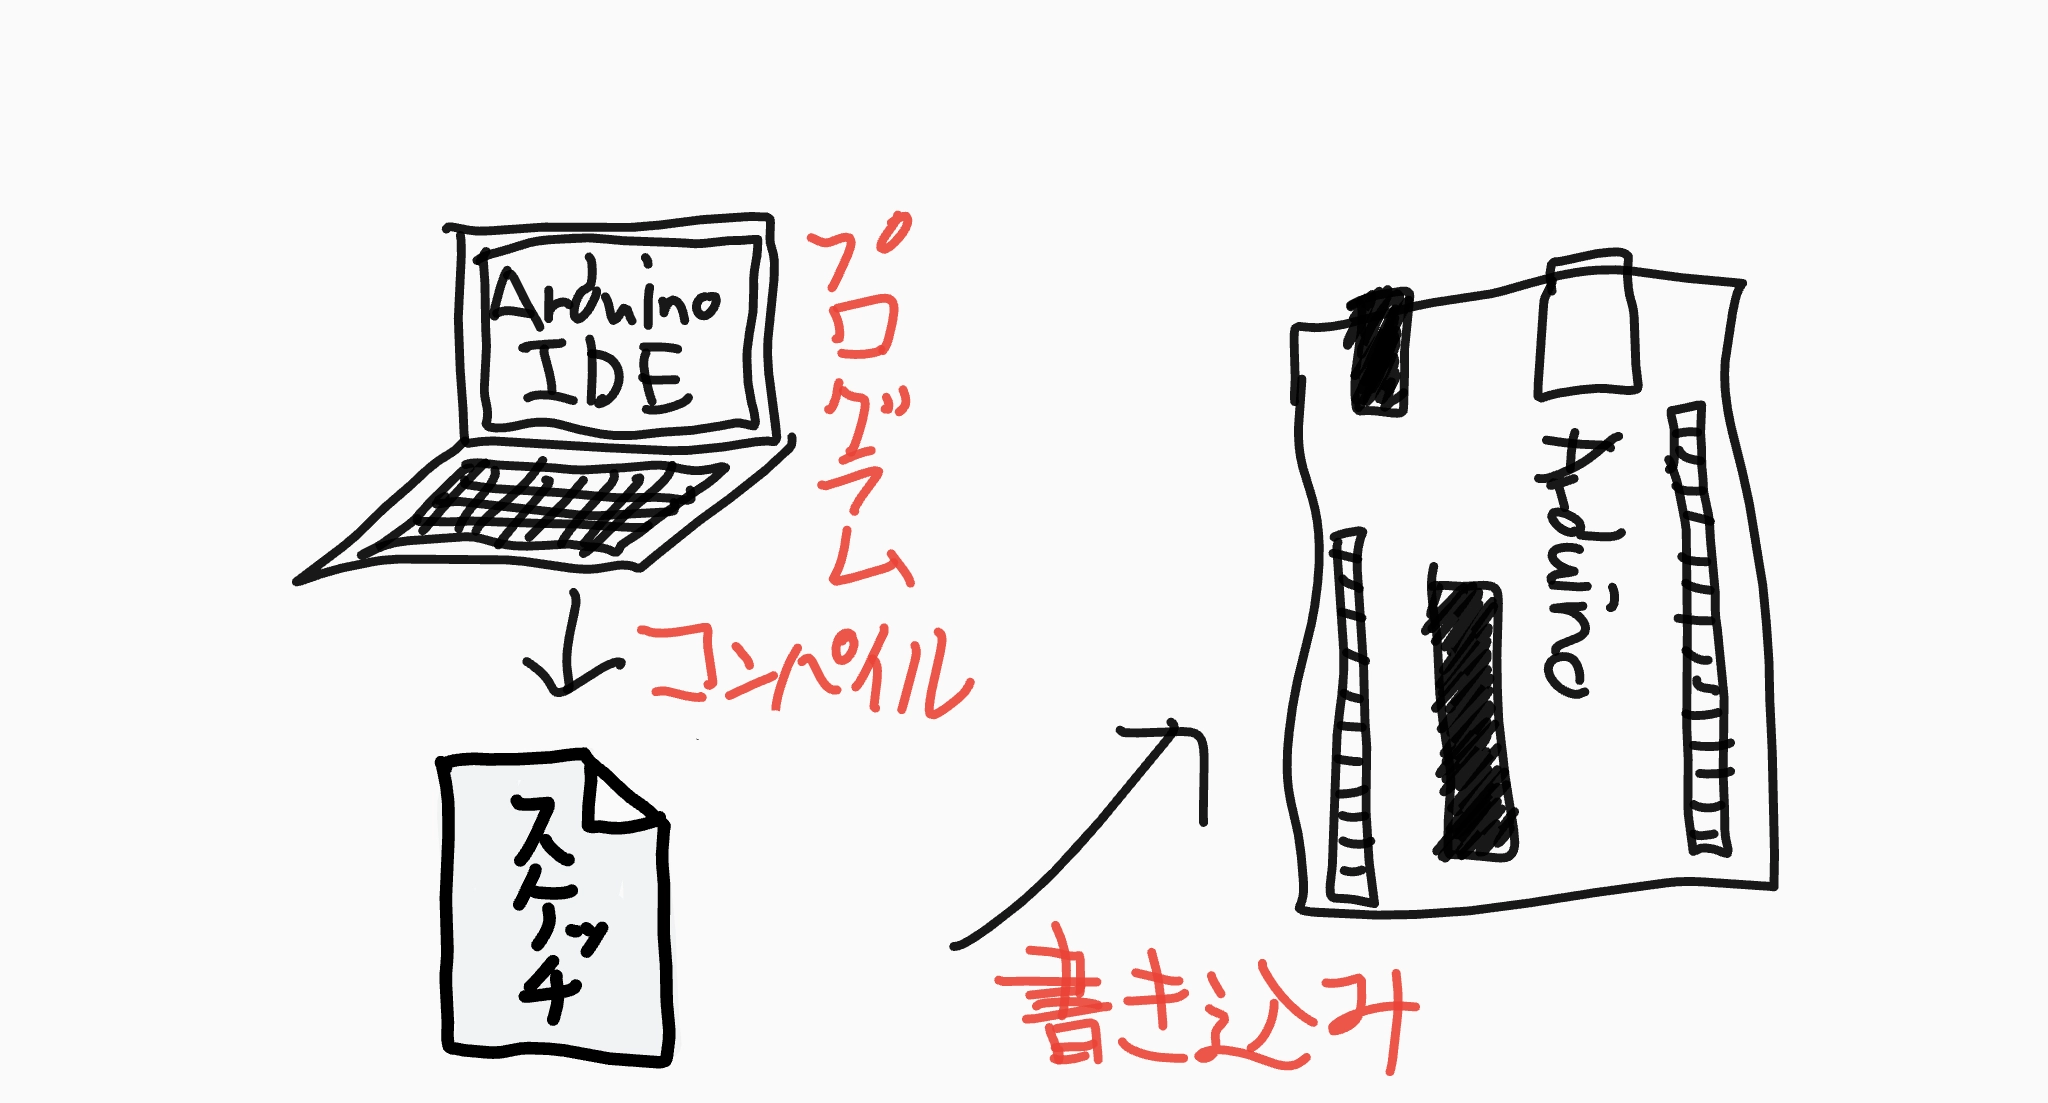 Arduino
IDE
プログラム
コンパイル
スケッチ
書き込み
Arduino